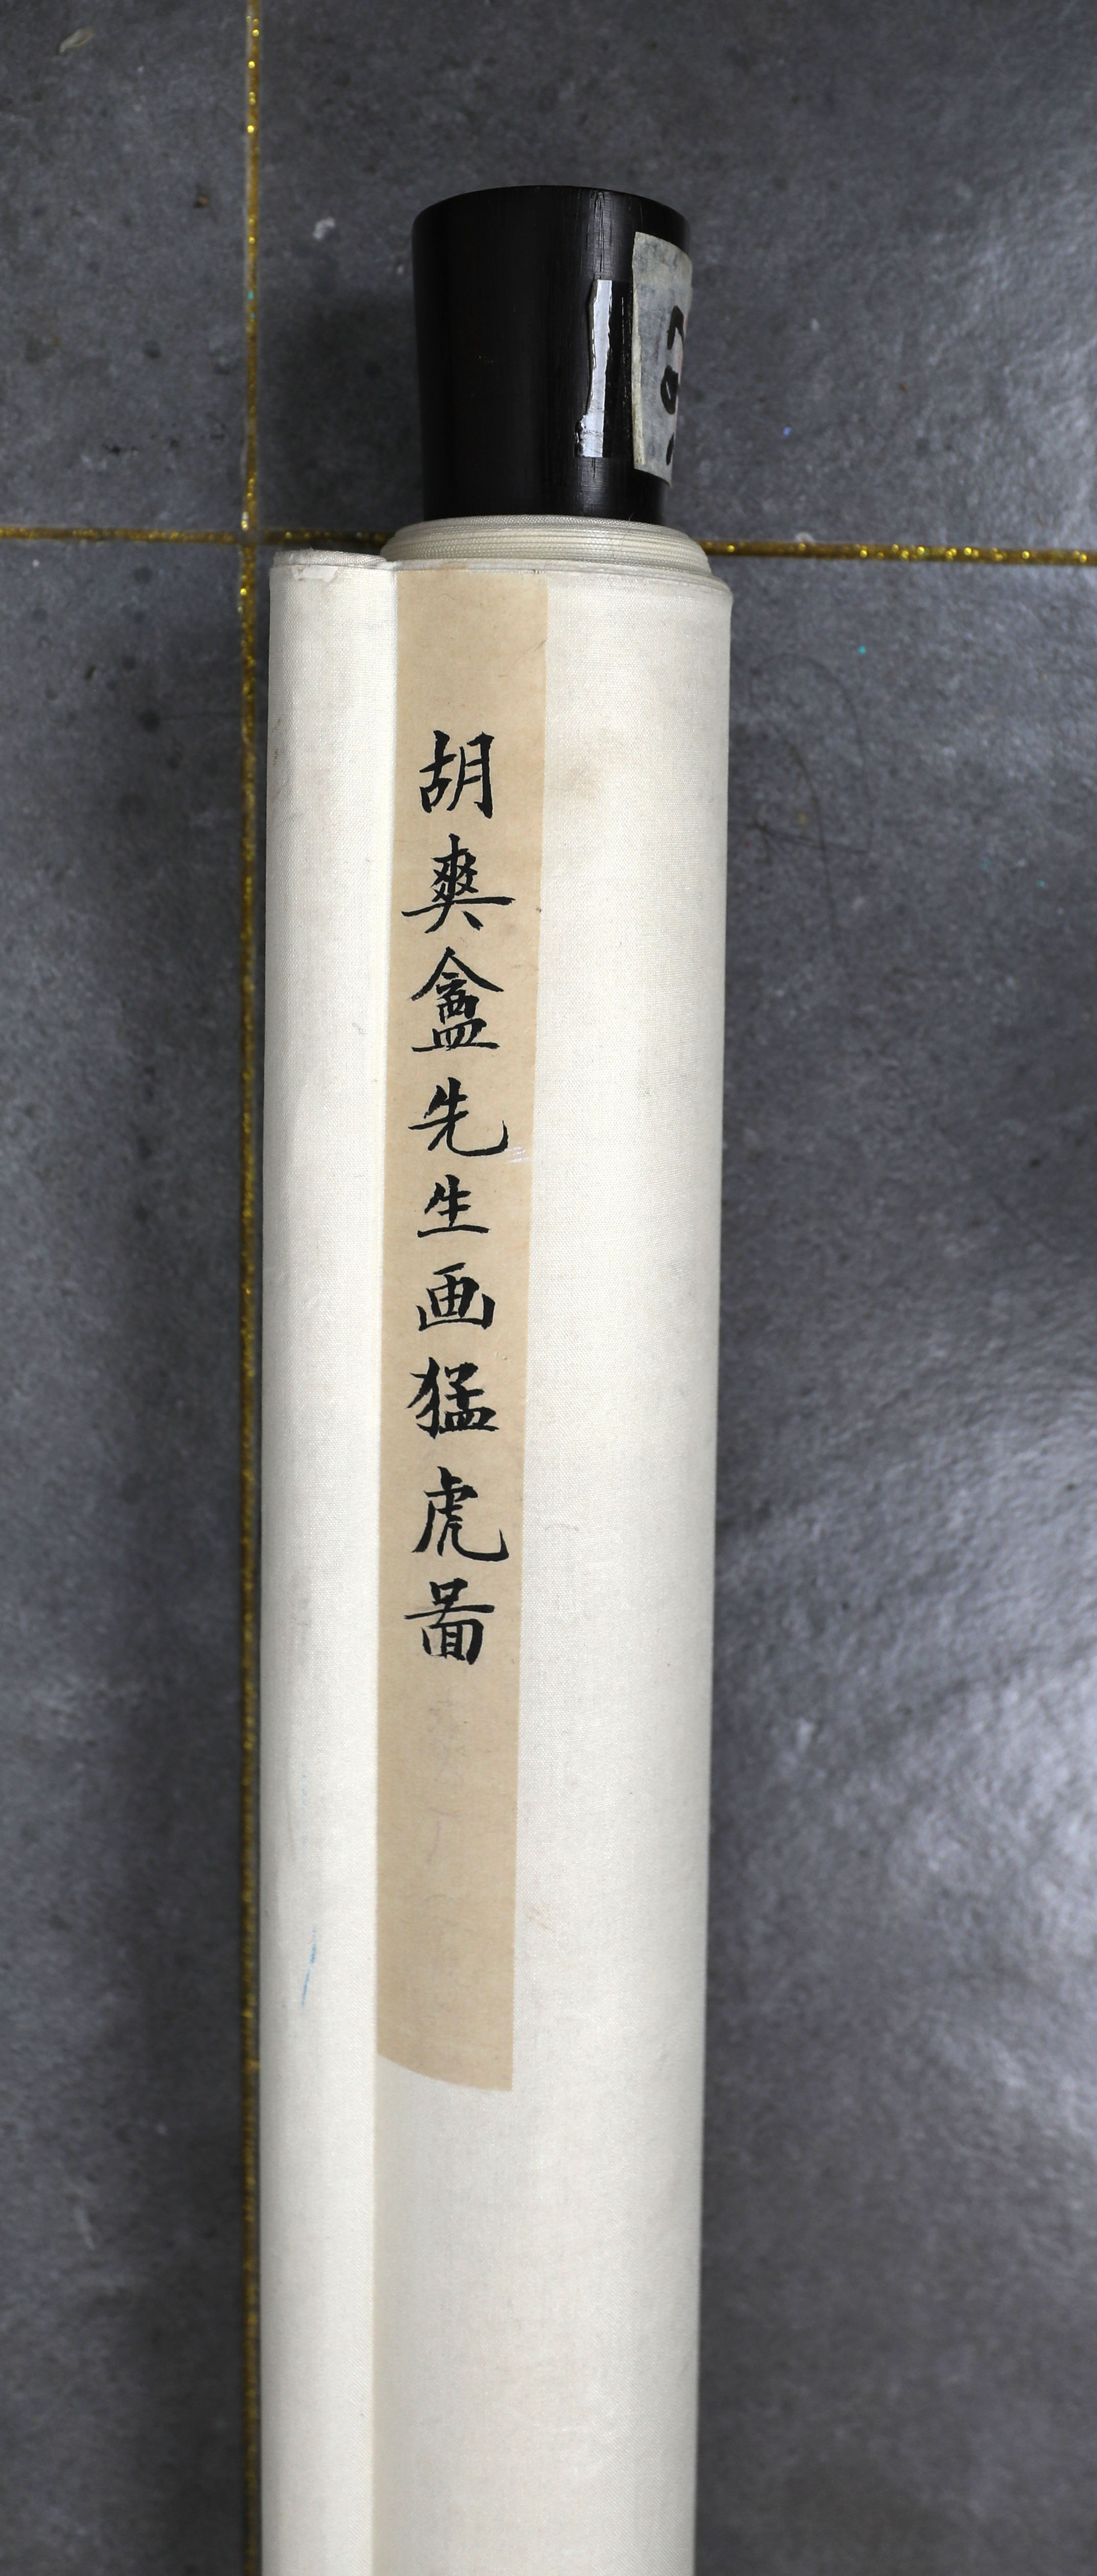 胡爽盦先生画猛虎啚